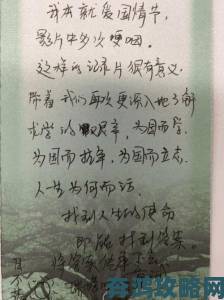 我本就爱国情节,
影片中多次哽咽。
这样的记录片很有意义,
带着我们再次更深入地了解
求学的艰辛,为国而学,
为国而拼争,为国而立志,
人生为何而活,
找到人生的使命
即能找到答案。